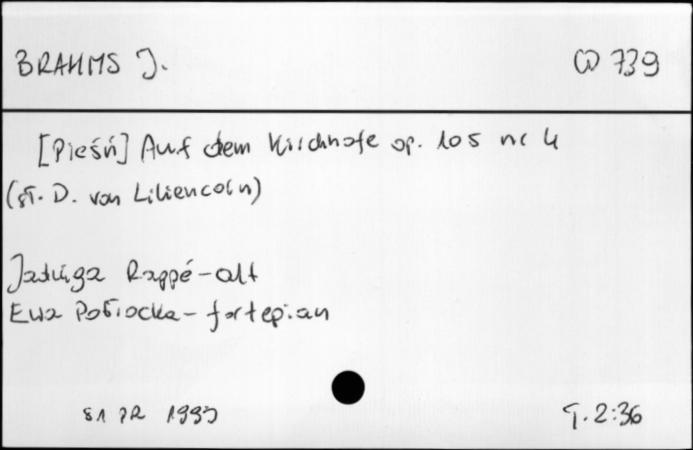 BRAHMS J. CD 739
[Pieśń] Auf dem Kirchhofe op. 105 nr 4
(sł. D. von Liliencorn)
Jadwiga Rappé - alt
Ewa Pobłocka - fortepian
S1 PR 1993 T. 2:36